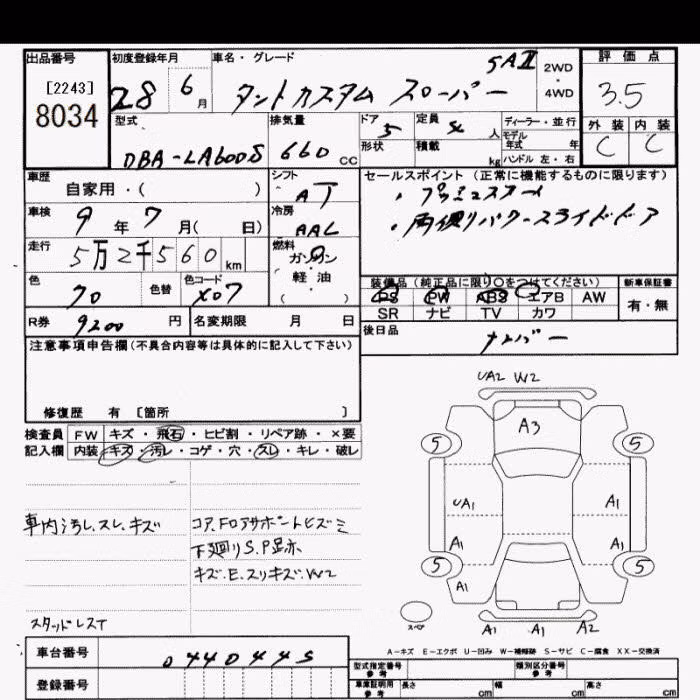 出品番号 [2243] 8034
初度登録年月 28 6月
車名・グレード タントカスタム スローパー SAⅡ
2WD・4WD
評価点 3.5
外装 C 内装 C
型式 DBA-LA600S
排気量 660 CC
ドア 5
形状
定員 人
積載 kg
ディーラー・並行
モデル年式 年
ハンドル 左・右
車歴 自家用・( )
シフト AT
車検 9年7月( 日)
冷房 AAC
走行 5万2千560km
燃料 ガソリン・軽油 ( )
色 70 色替 色コード X07
R券 9200円 名変期限 月 日
セールスポイント (正常に機能するものに限ります)
・プッシュスタート
・両側パワースライドドア
装備品 (純正品に限り○をつけてください)
PS PW ABS エアB AW
SR ナビ TV カワ
新車保証書 有・無
後日品 ナンバー
注意事項申告欄(不具合内容等は具体的に記入して下さい)
修復歴 有 [箇所 ]
検査員記入欄
FW キズ・飛石・ヒビ割・リペア跡・×要
内装 キズ・汚レ・コゲ・穴・スレ・キレ・破レ
車内汚レ.スレ.キズ
コア.Fロアサポートヒズミ
下廻りS.P足赤
キズ.E.スリキズ.W2
スタッドレスT
UA2 W2
A3
5 5
UA1 A1
A1 A1
5 5
A1
スペア
A1 A1 A2
A-キズ E-エクボ U-凹み W-補修跡 S-サビ C-腐食 XX-交換済
車台番号 0440445
登録番号
型式指定番号 参考
類別区分番号 参考
車庫証明用 参考 長さ cm 幅 cm 高さ cm